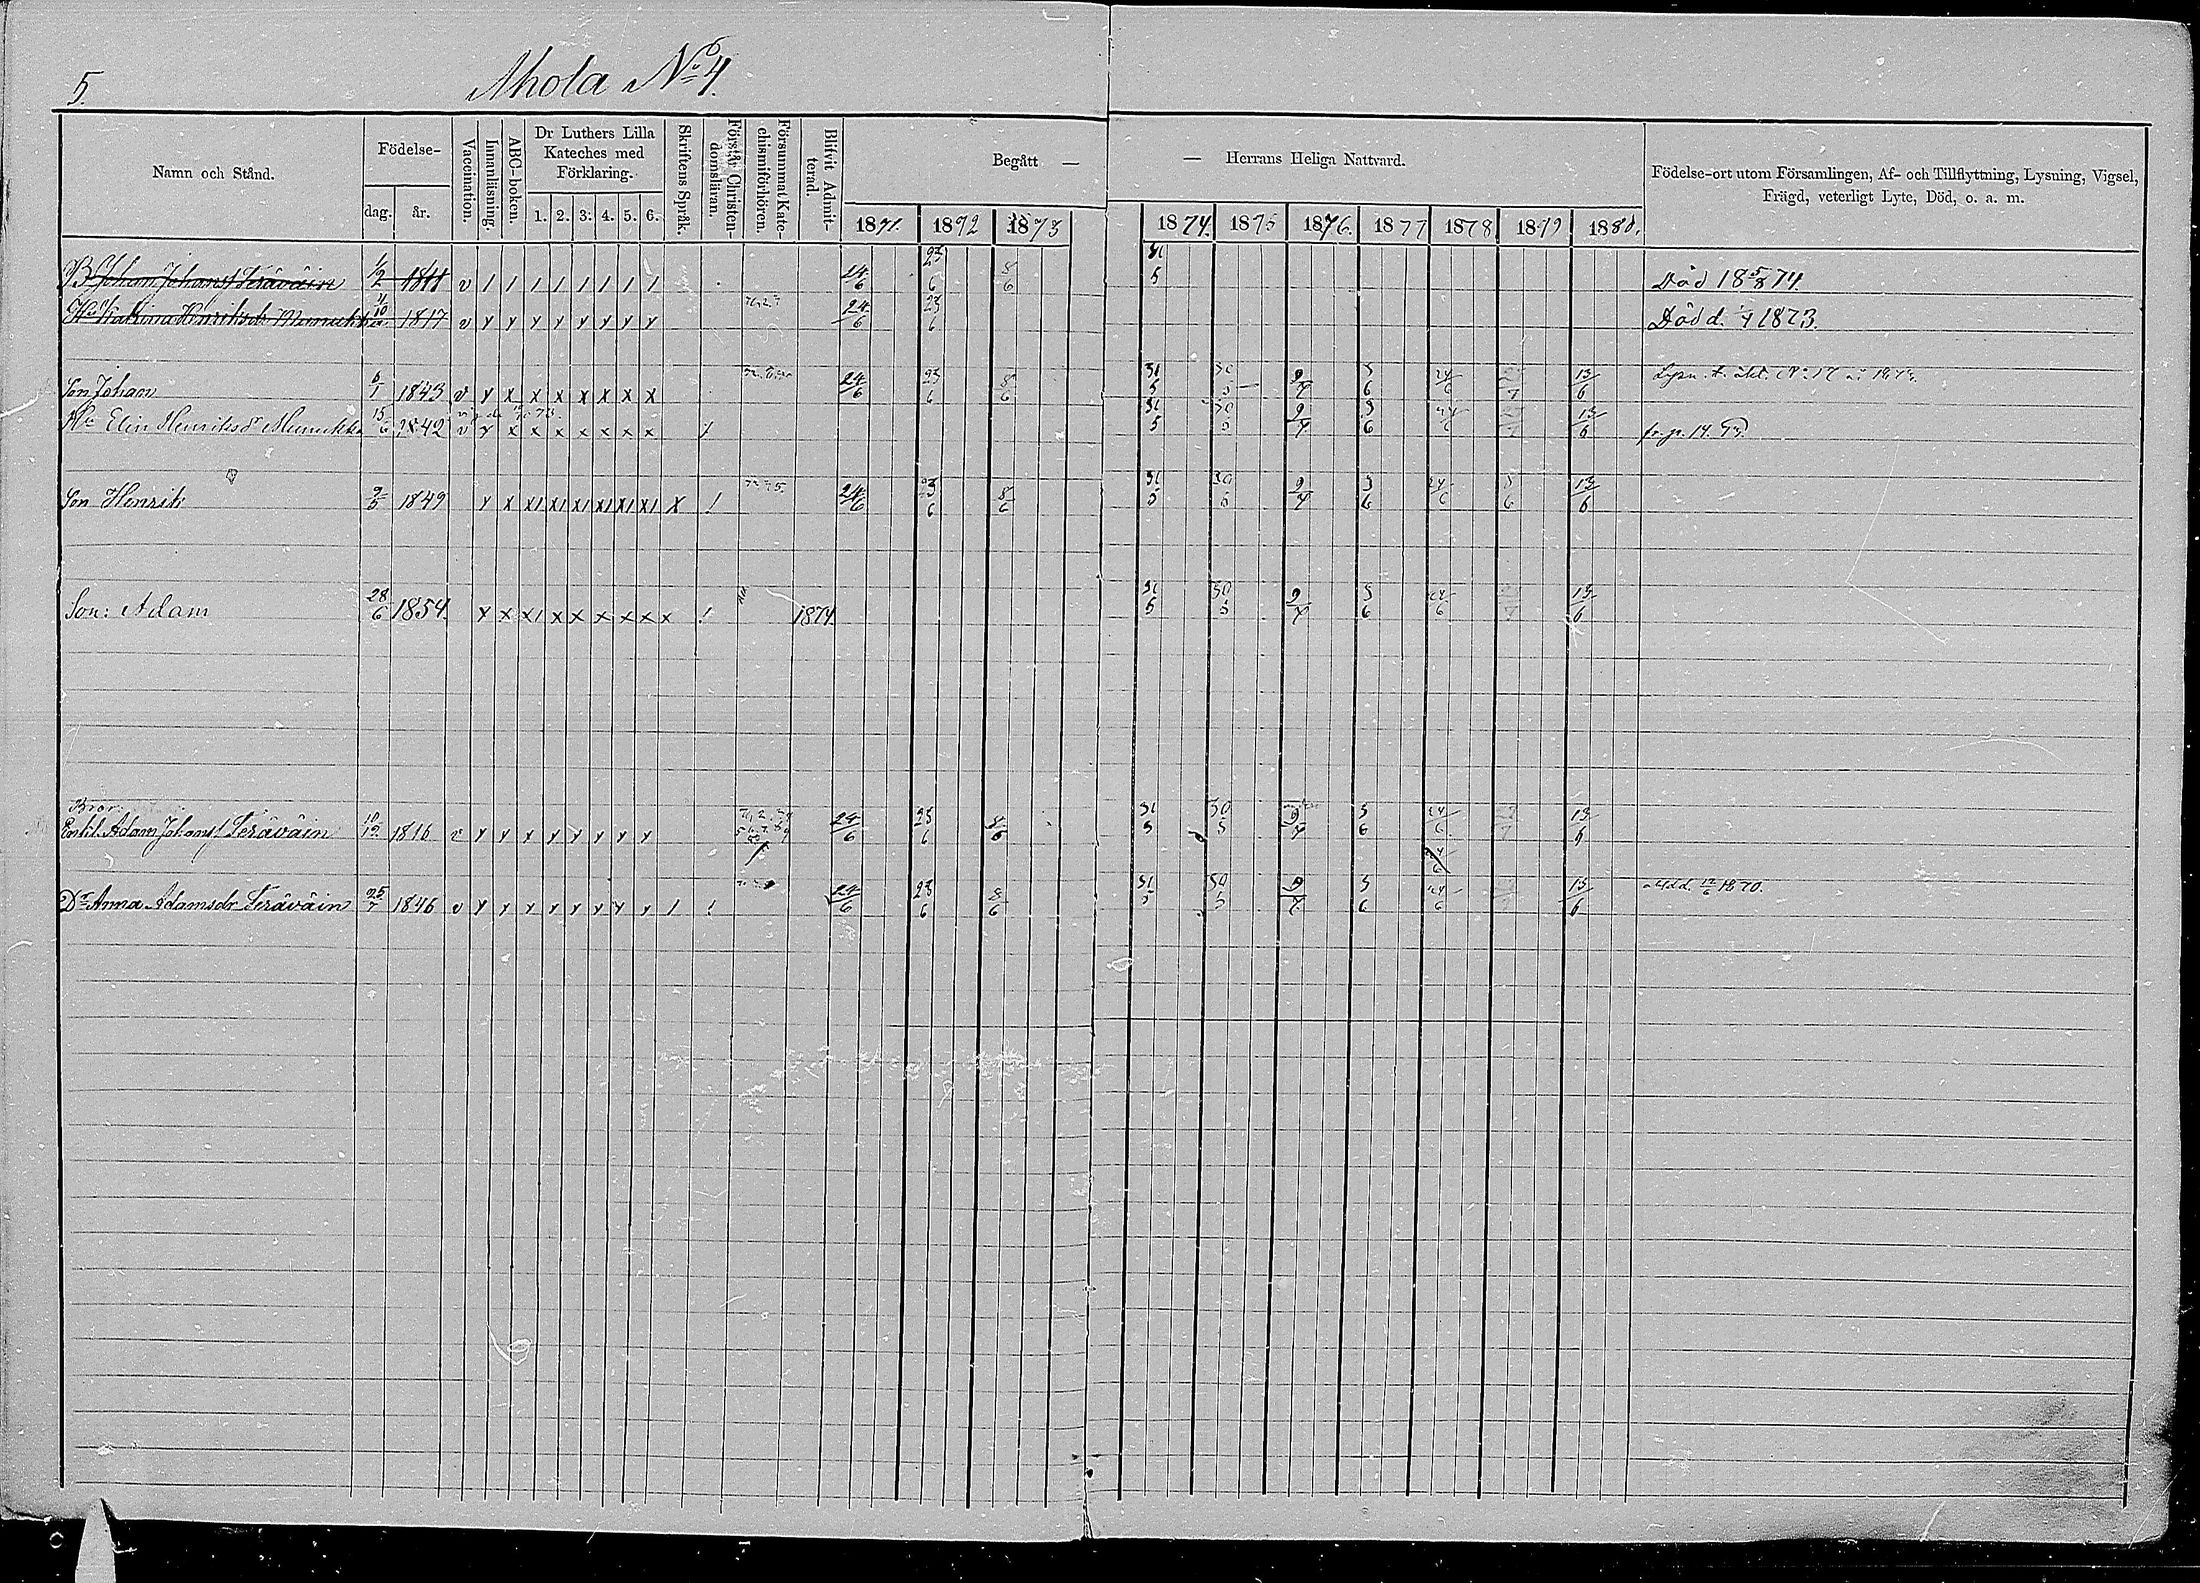 5.
Ahola No 4.
Namn och Stånd.
Födelse-
dag. år.
Vaccination.
Innanläsning.
ABC-boken.
Dr Luthers Lilla
Kateches med
Förklaring.
1. 2. 3. 4. 5. 6.
Skriftens Språk.
Förstår Christen-
domsläran.
Försummat Kate-
chismiförhören.
Blifvit Admit-
terad.
Begått —
— Herrans Heliga Nattvard.
1871. 1872 1873
1874. 1875 1876. 1877 1878 1879 1880.
Födelse-ort utom Församlingen, Af- och Tillflyttning, Lysning, Vigsel,
Frägd, veterligt Lyte, Död, o. a. m.
B. Johan Johansf Teräväin 1/2 1811 v / / / / / / / / 24/6 23/6 8/6 31/5 Död 18 5/8 74.
Hu Katrina Henriksdr Mimukka 1817 v y y y y y y y y 24/6 23/6 Död d. 1873.
Son Johan 6/1 1843 v y x x x x x x x 24/6 23/6 8/6 31/5 30/5 9/7 3/6 24/6 13/6
Hu Elin Henriksdr Mimukka 15/6 1842 v y x x x x x x x / 31/5 30/5 9/7 3/6 24/6 13/6 fr. p. 14.
Son Henrik 9/5 1849 y x x1 x1 x1 x1 x1 x1 x ! 24/6 23/6 8/6 31/5 30/5 9/7 3/6 24/6 13/6
Son: Adam 28/6 1854. y x x1 x x x x x x ! 1874. 31/5 30/5 9/7 3/6 24/6 13/6
Bror
Enkl. Adam Johansf Teräväin 10/12 1816 v y y y y y y y y 24/6 23/6 8/6 31/5 30/5 9/7 3/6 24/6 13/6
Dr Anna Adamsdr Teräväin 25/7 1846 v y y y y y y y y / ! 24/6 23/6 8/6 31/5 30/5 9/7 3/6 24/6 13/6 1870.